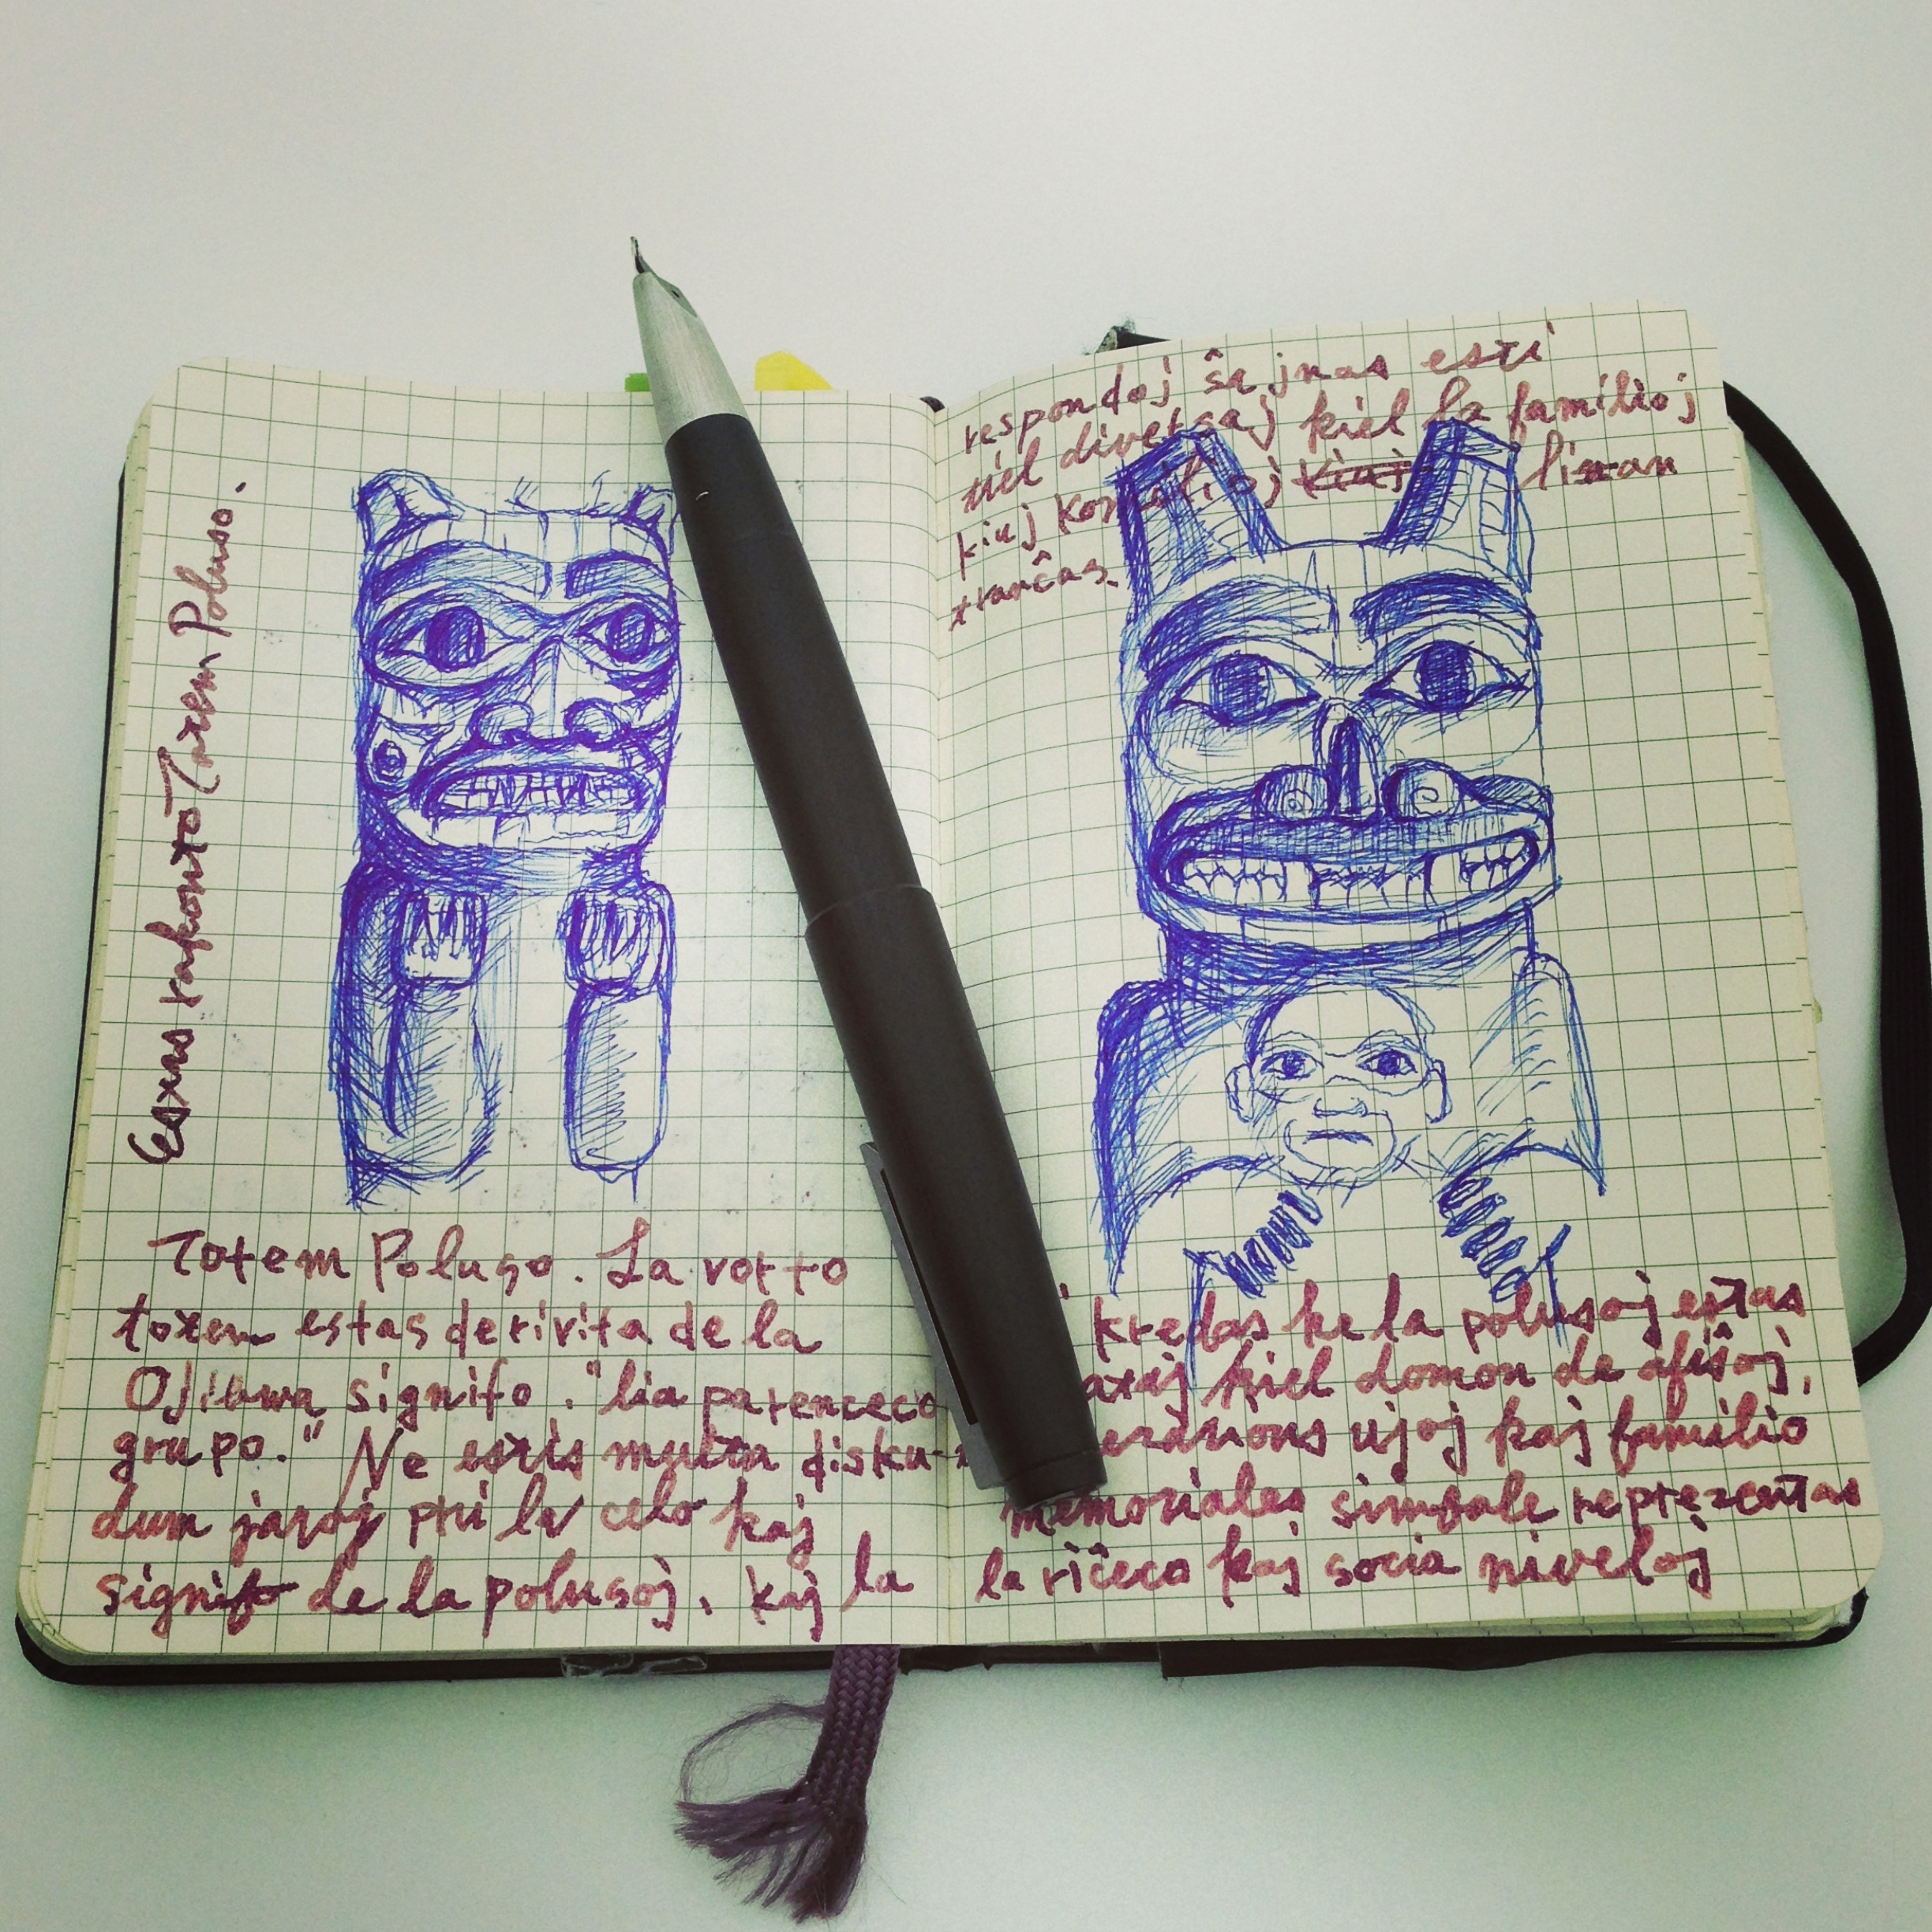 rakonto Totem Poluso.
Totem Poluso. La vorto
totem estas derivita de la
Ojibwa signifo. "lia parenceco
grupo." Ne estis multa disku-
dum jaroj pri la celo kaj
signifo de la polusoj, kaj la
respondoj ŝajnas esti
tiel diversaj kiel la familioj
kiuj kiuj linan
tranĉas.
kredas ke la polusoj estas
kiel domon de afiŝoj,
ujoj kaj familio
memoriales simbole reprezentas
la riĉeco kaj socia niveloj